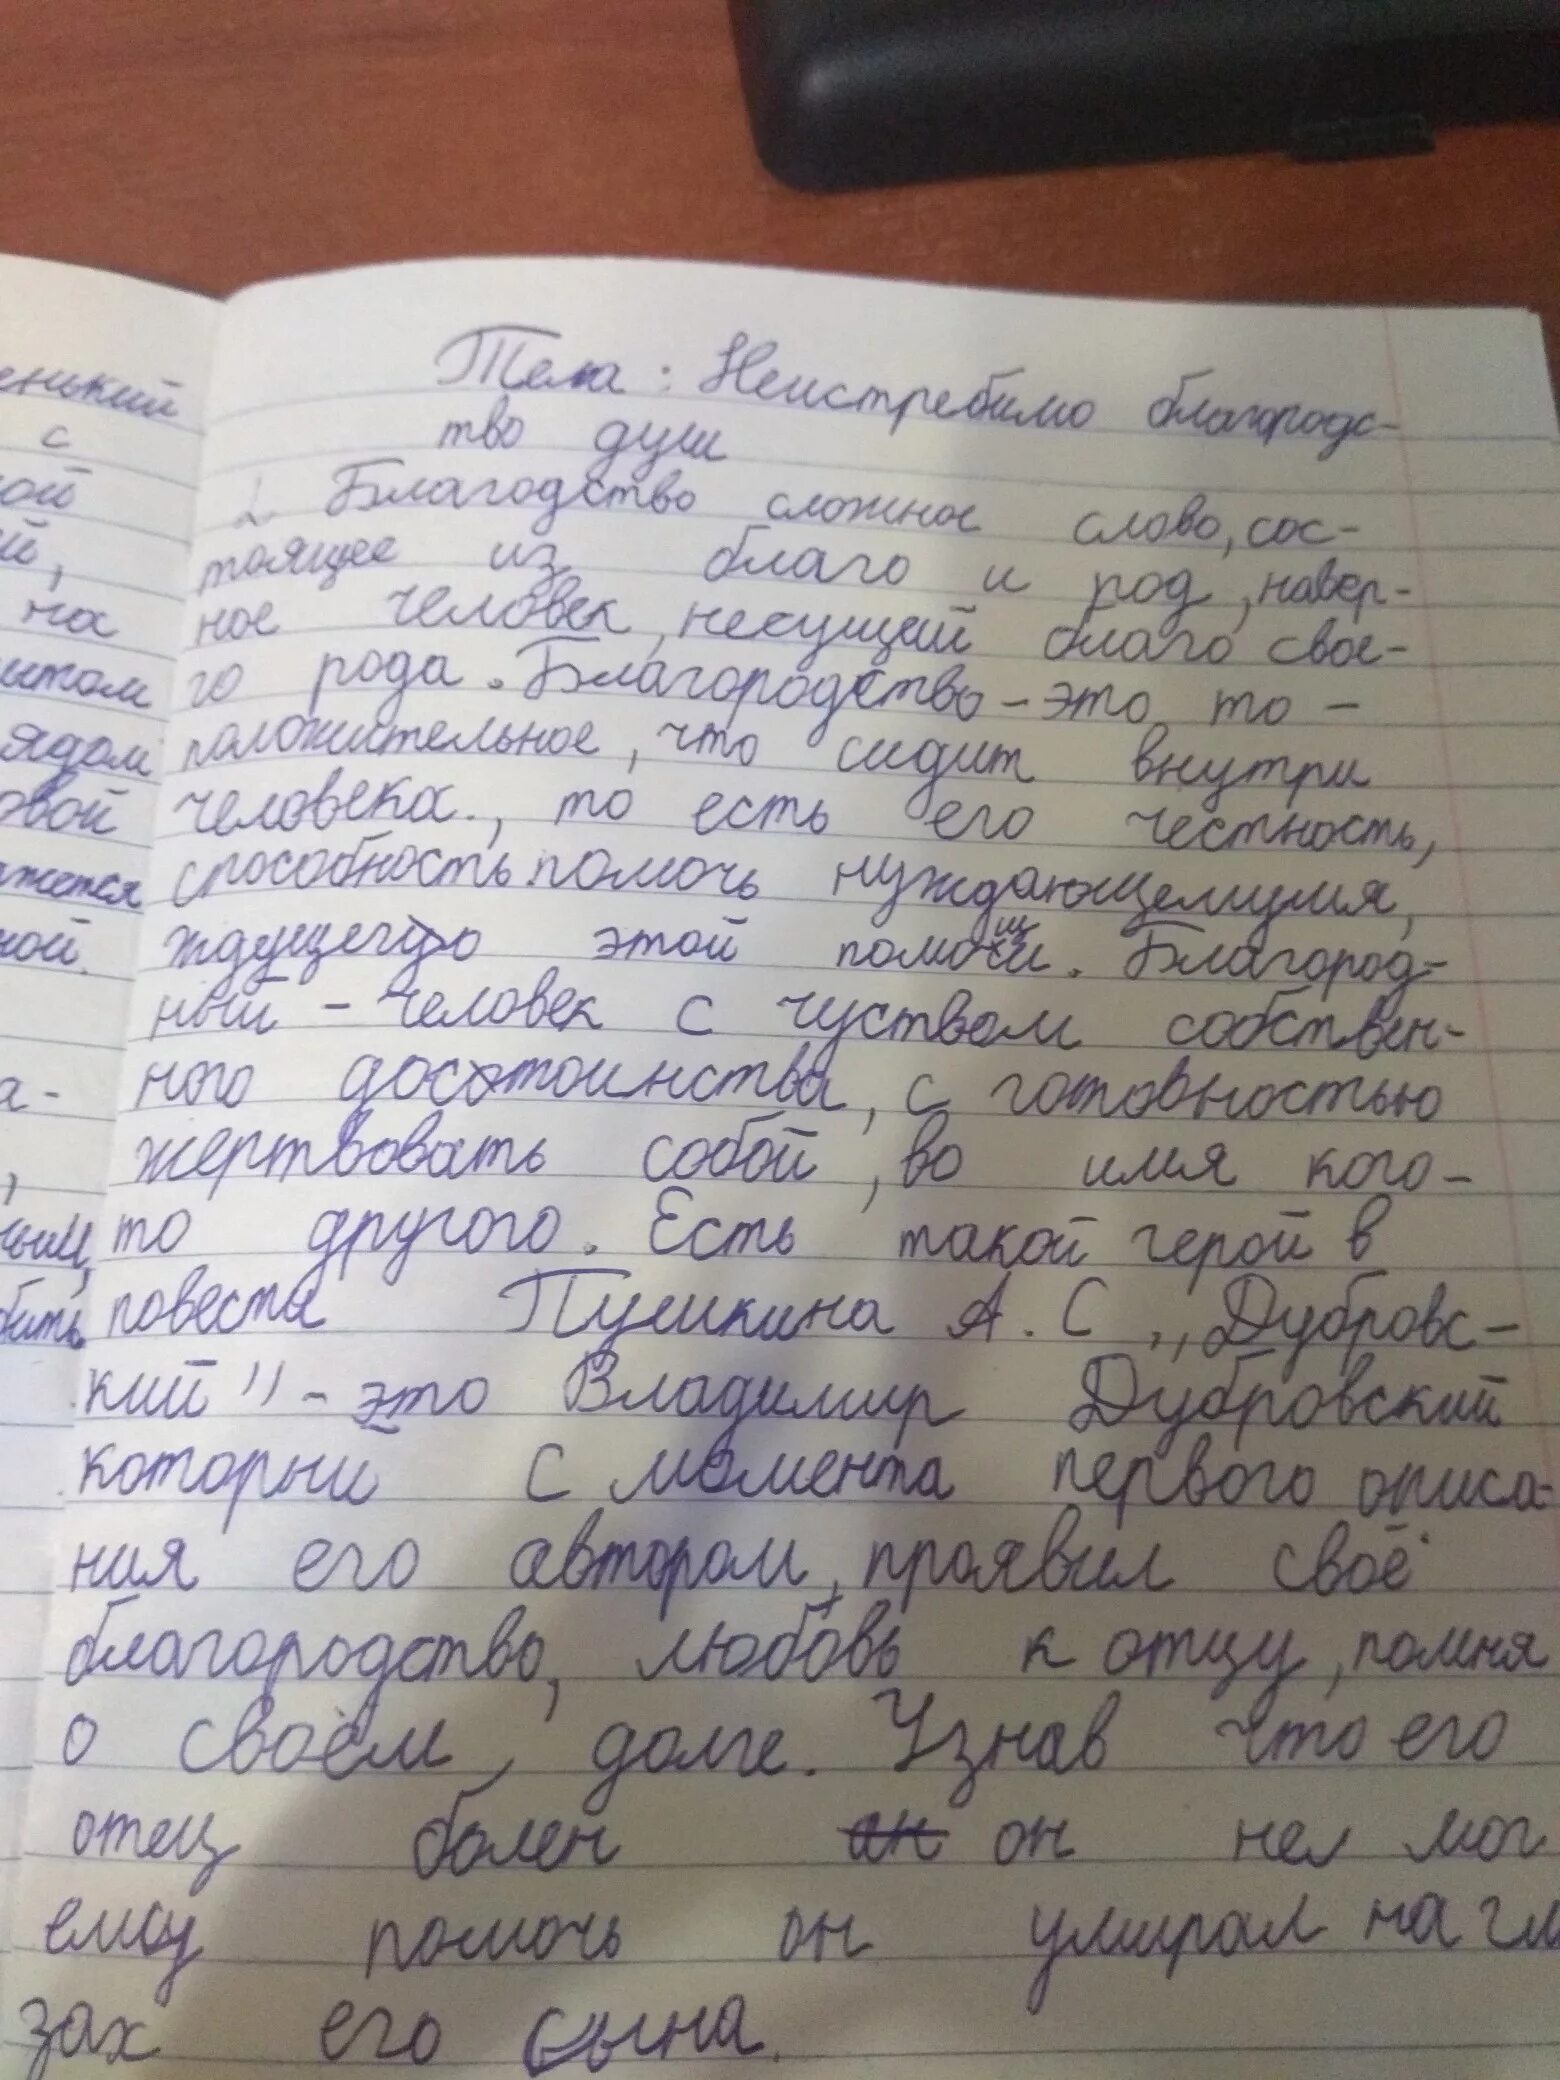 енький
с
ой
й,
на
итом
ядом
овой
жется
ной.
а-
,
ным,
бить
Тема: Неистребимо благородс-
тво душ
Благодство сложное слово, сос-
тоящее из благо и род, навер-
ное человек, несущий благо свое-
го рода. Благородство - это то -
положительное, что сидит внутри
человека., то есть его честность,
способность помочь нуждающемумя,
ждущего этой помощи. Благород-
ный - человек с чуством собствен-
ного достоинства, с готовностью
жертвовать собой, во имя кого-
то другого. Есть такой герой в
повести Пушкина А. С „Дубровс-
кий" - это Владимир Дубровский
который с момента первого описа-
ния его автором, проявил своё
благородство, любовь к отцу, помня
о своём, долге. Узнав что его
отец болен он он нел мог
ему помочь он умирал на гла
зах его сына.